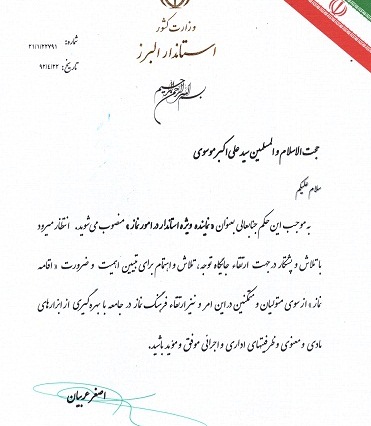 وزارت کشور
استاندار البرز
شماره: ۲۱/۱/۲۲۷۹۱
تاریخ: ۹۲/۴/۲۲
بسم الله الرحمن الرحیم
حجت الاسلام و المسلمین سید علی اکبر موسوی
سلام علیکم
به موجب این حکم جنابعالی بعنوان « نماینده ویژه استاندار در امور نماز » منصوب می شوید. انتظار میرود
با تلاش و پشتکار در جهت ارتقاء جایگاه توجه، تلاش و اهتمام برای تبیین اهمیت و ضرورت « اقامه
نماز » از سوی متولیان و مسئولین در این امر و نیز ارتقاء فرهنگ نماز در جامعه با بهره گیری از ابزارهای
مادی و معنوی و ظرفیتهای اداری و اجرائی موفق و مؤید باشید.
اصغر عربیان